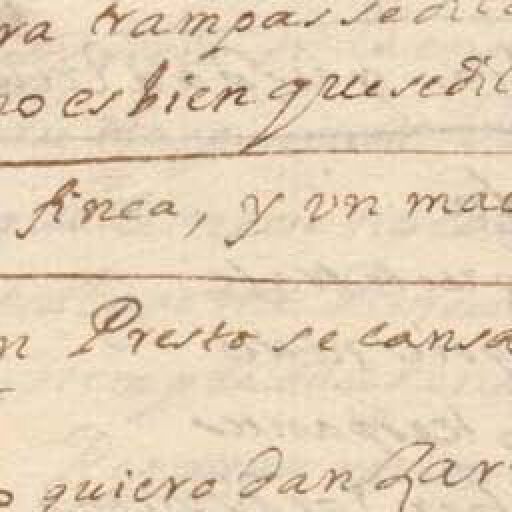 ra trampas se dic
no es bien que se dic
finca, y vn mac
n Presto se cansa
o quiero danzar